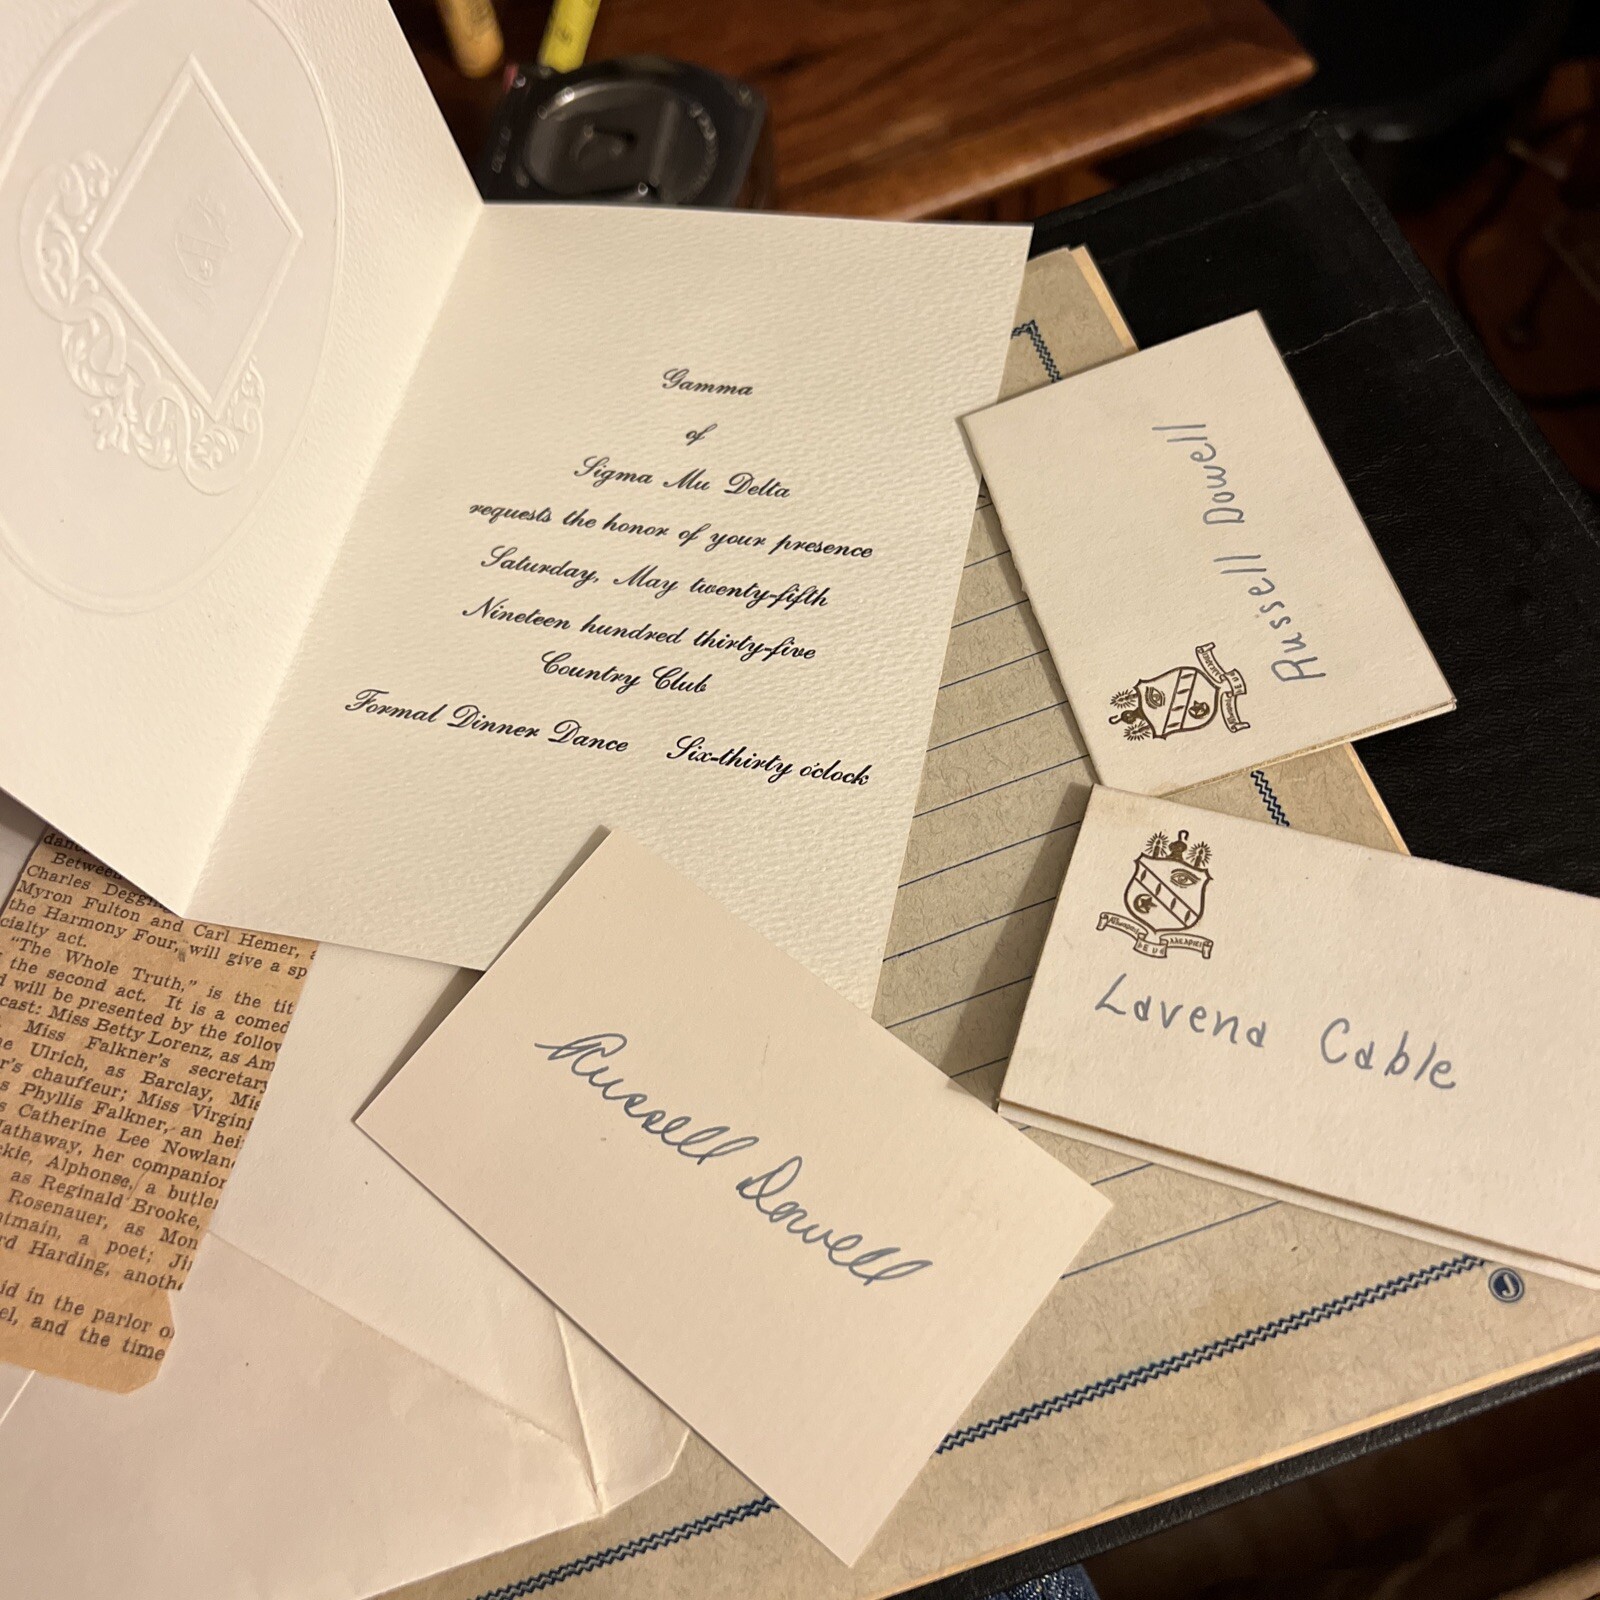 Gamma
of
Sigma Mu Delta
requests the honor of your presence
Saturday, May twenty-fifth
Nineteen hundred thirty-five
Country Club
Formal Dinner Dance Six-thirty o'clock
Russell Dowell
Lavena Cable
Russell Dowell
Between
Charles
Myron Fulton and Carl Hemer,
the Harmony Four, will give a sp
cialty act.
"The Whole Truth," is the tit
the second act. It is a comed
d will be presented by the follow
cast: Miss Betty Lorenz, as Am
Miss Falkner's secretary
ne Ulrich, as Barclay, Mis
r's chauffeur; Miss Virgini
s Phyllis Falkner, an hei
s Catherine Lee Nowlan
Hathaway, her companion
ckie, Alphonse, a butler
as Reginald Brooke,
Rosenauer, as Mon
tmain, a poet; Ji
rd Harding, anoth
id in the parlor o
el, and the time
J